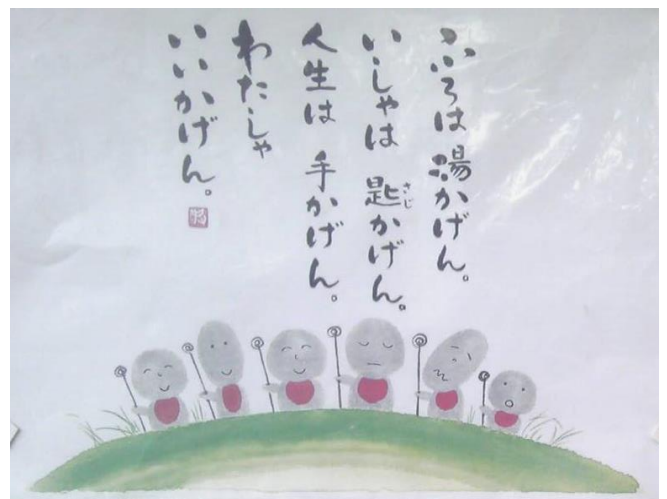 ふろは 湯かげん。
いしゃは 匙かげん。
さじ
人生は 手かげん。
わたしゃ
いいかげん。